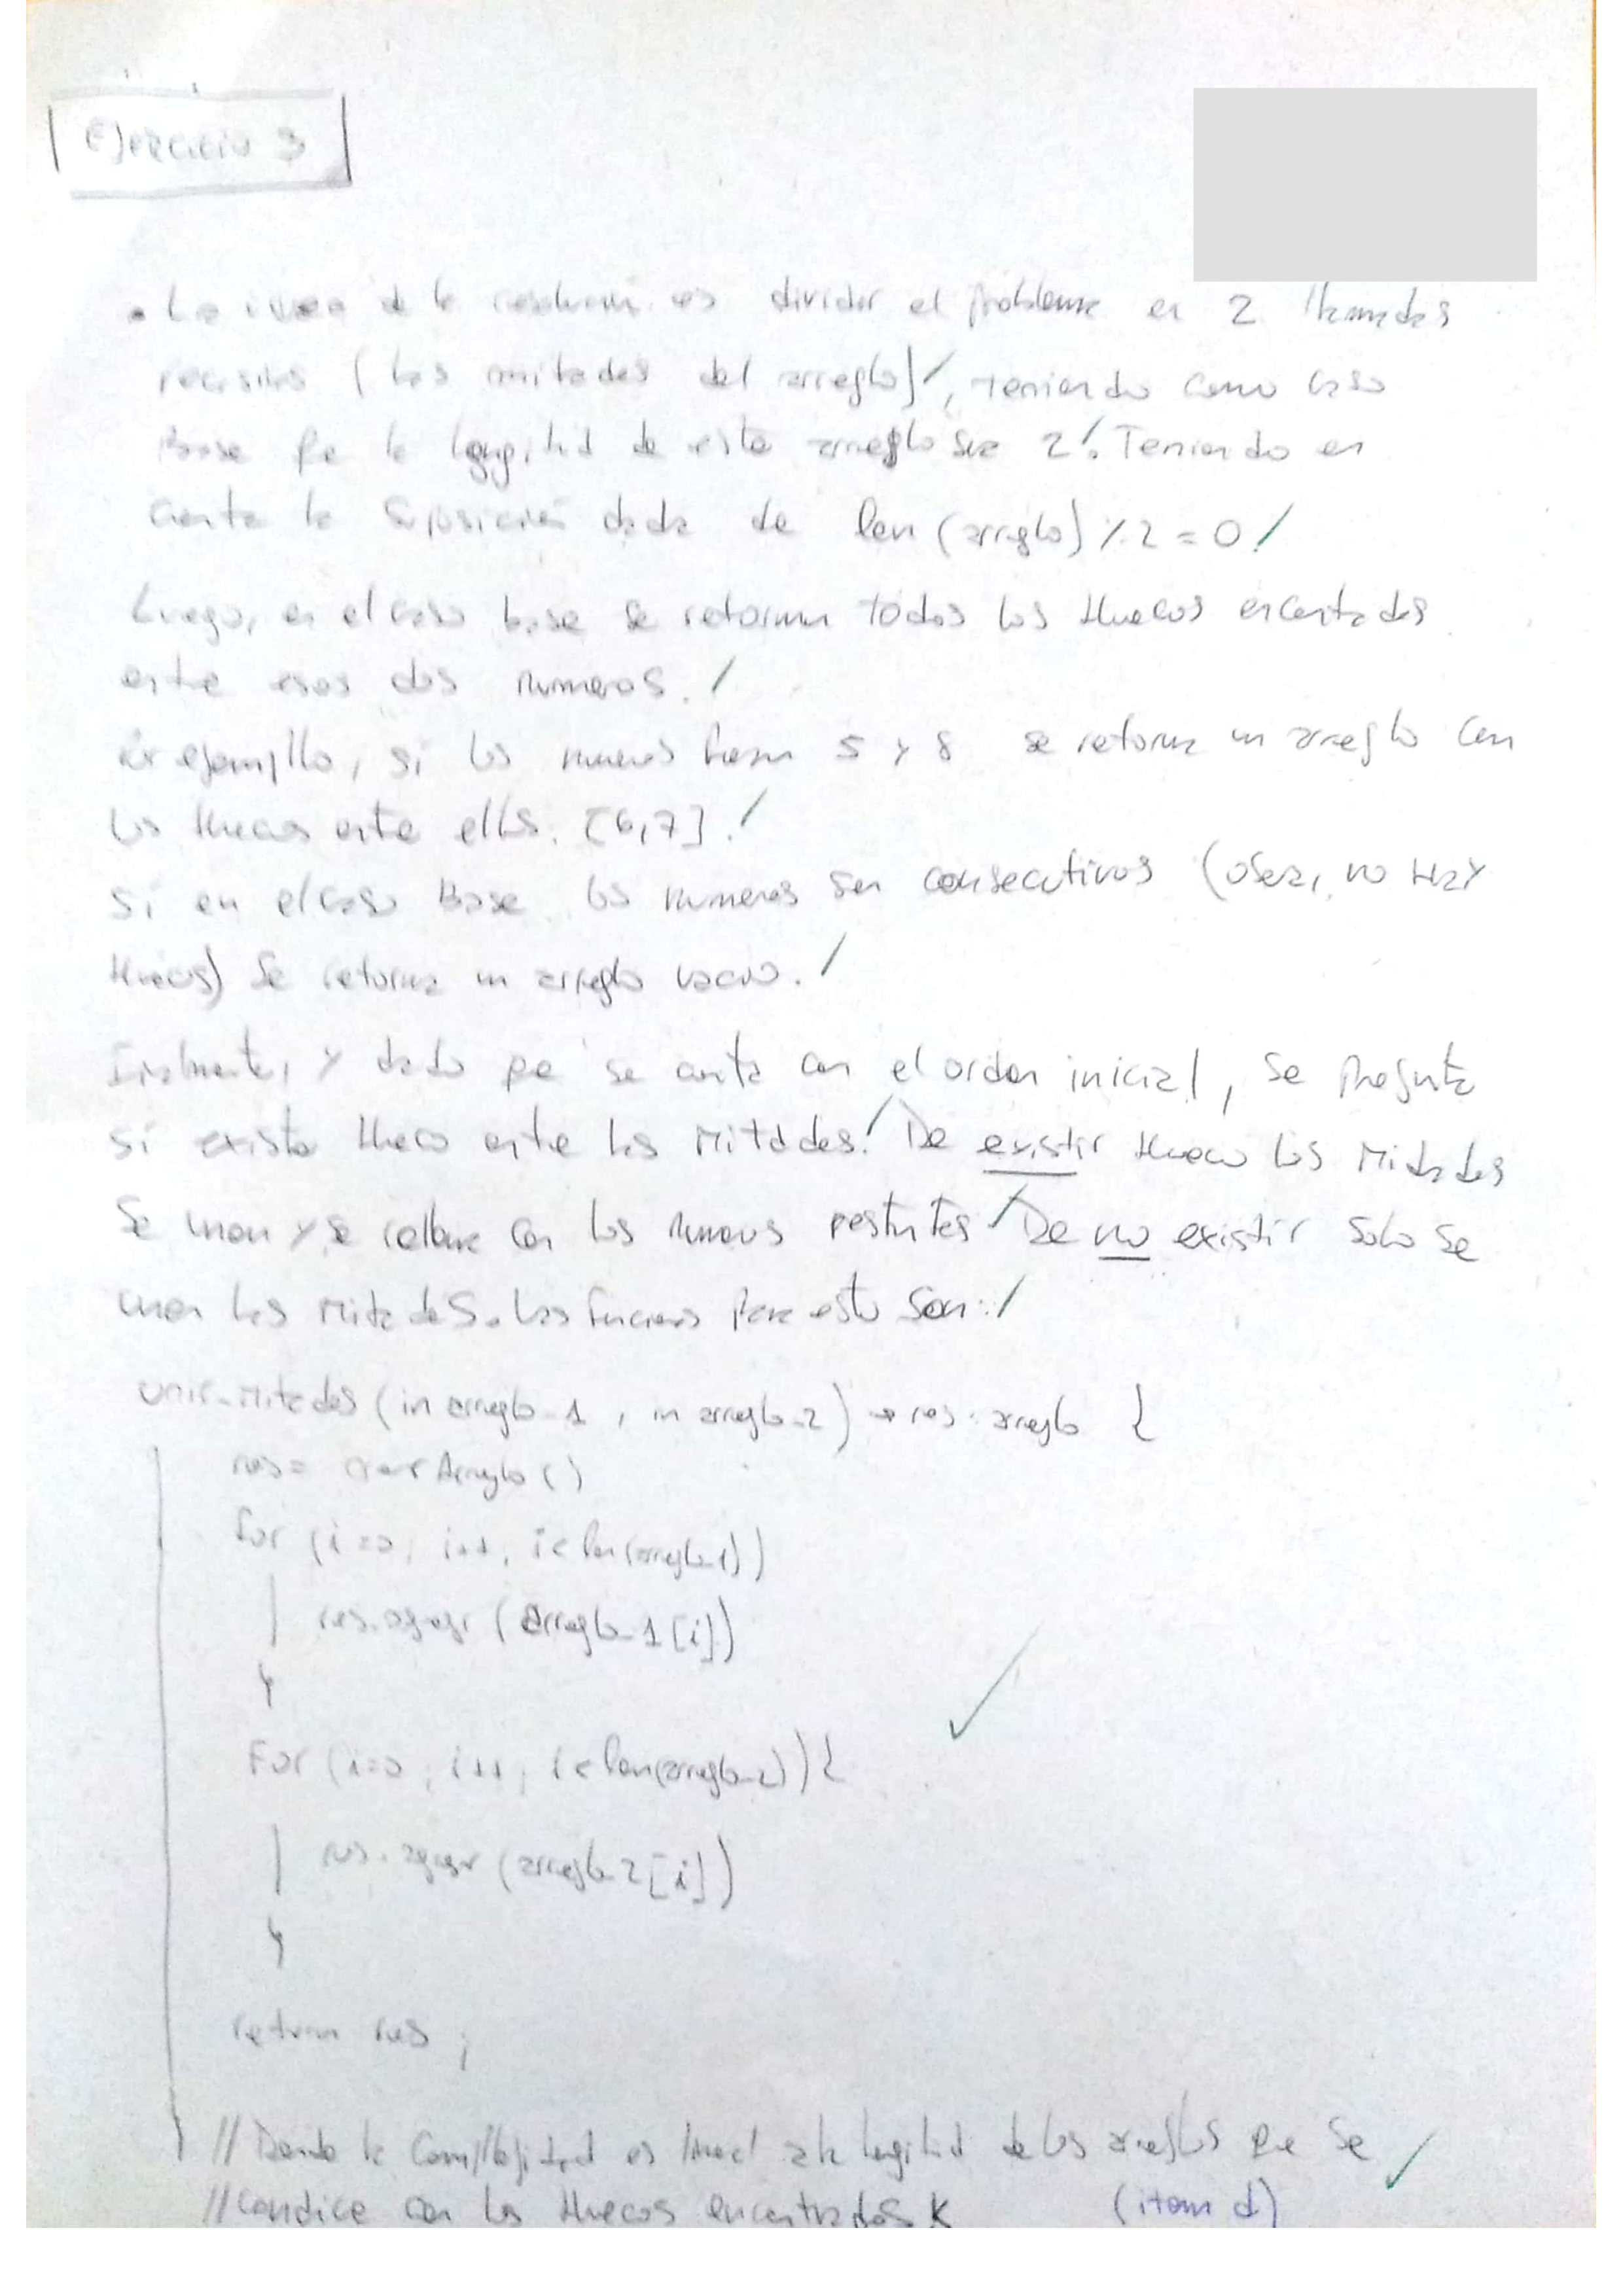 Ejercicio 3
• La idea de la resolución es dividir el problema en 2 llamadas
recursivas (las mitades del arreglo), teniendo como caso
Base que la longitud de este arreglo sea 2. Teniendo en
cuenta la suposición dada de len (arreglo) % 2 = 0
Luego, en el caso base se retornan todos los Huecos encontrados
entre esos dos numeros.
Por ejemplo, si los numeros fueran 5 y 8 se retorna un arreglo con
los Huecos entre ellos. [6,7].
Si en el caso Base los numeros son consecutivos (osea, no Hay
Huecos) se retorna un arreglo vacio.
y dado que se cuenta con el orden inicial, se Pregunta
si existe Hueco entre las Mitades. De existir Hueco las Mitades
Se unen y se con los numeros De no existir solo se
unen las Mitades. Las funciones para esto son:
unir-Mitades (in arreglo-1, in arreglo-2) → res: arreglo {
res = crearArreglo ()
for (i=0; i++; i< len(arreglo-1))
res.agregar (arreglo-1[i])
}
For (i=0; i++; i< len(arreglo-2)) {
res.agregar (arreglo-2[i])
}
return res ;
} // Donde la Complejidad es lineal a la longitud de los arreglos que se
// condice con los Huecos encontrados K (item d)